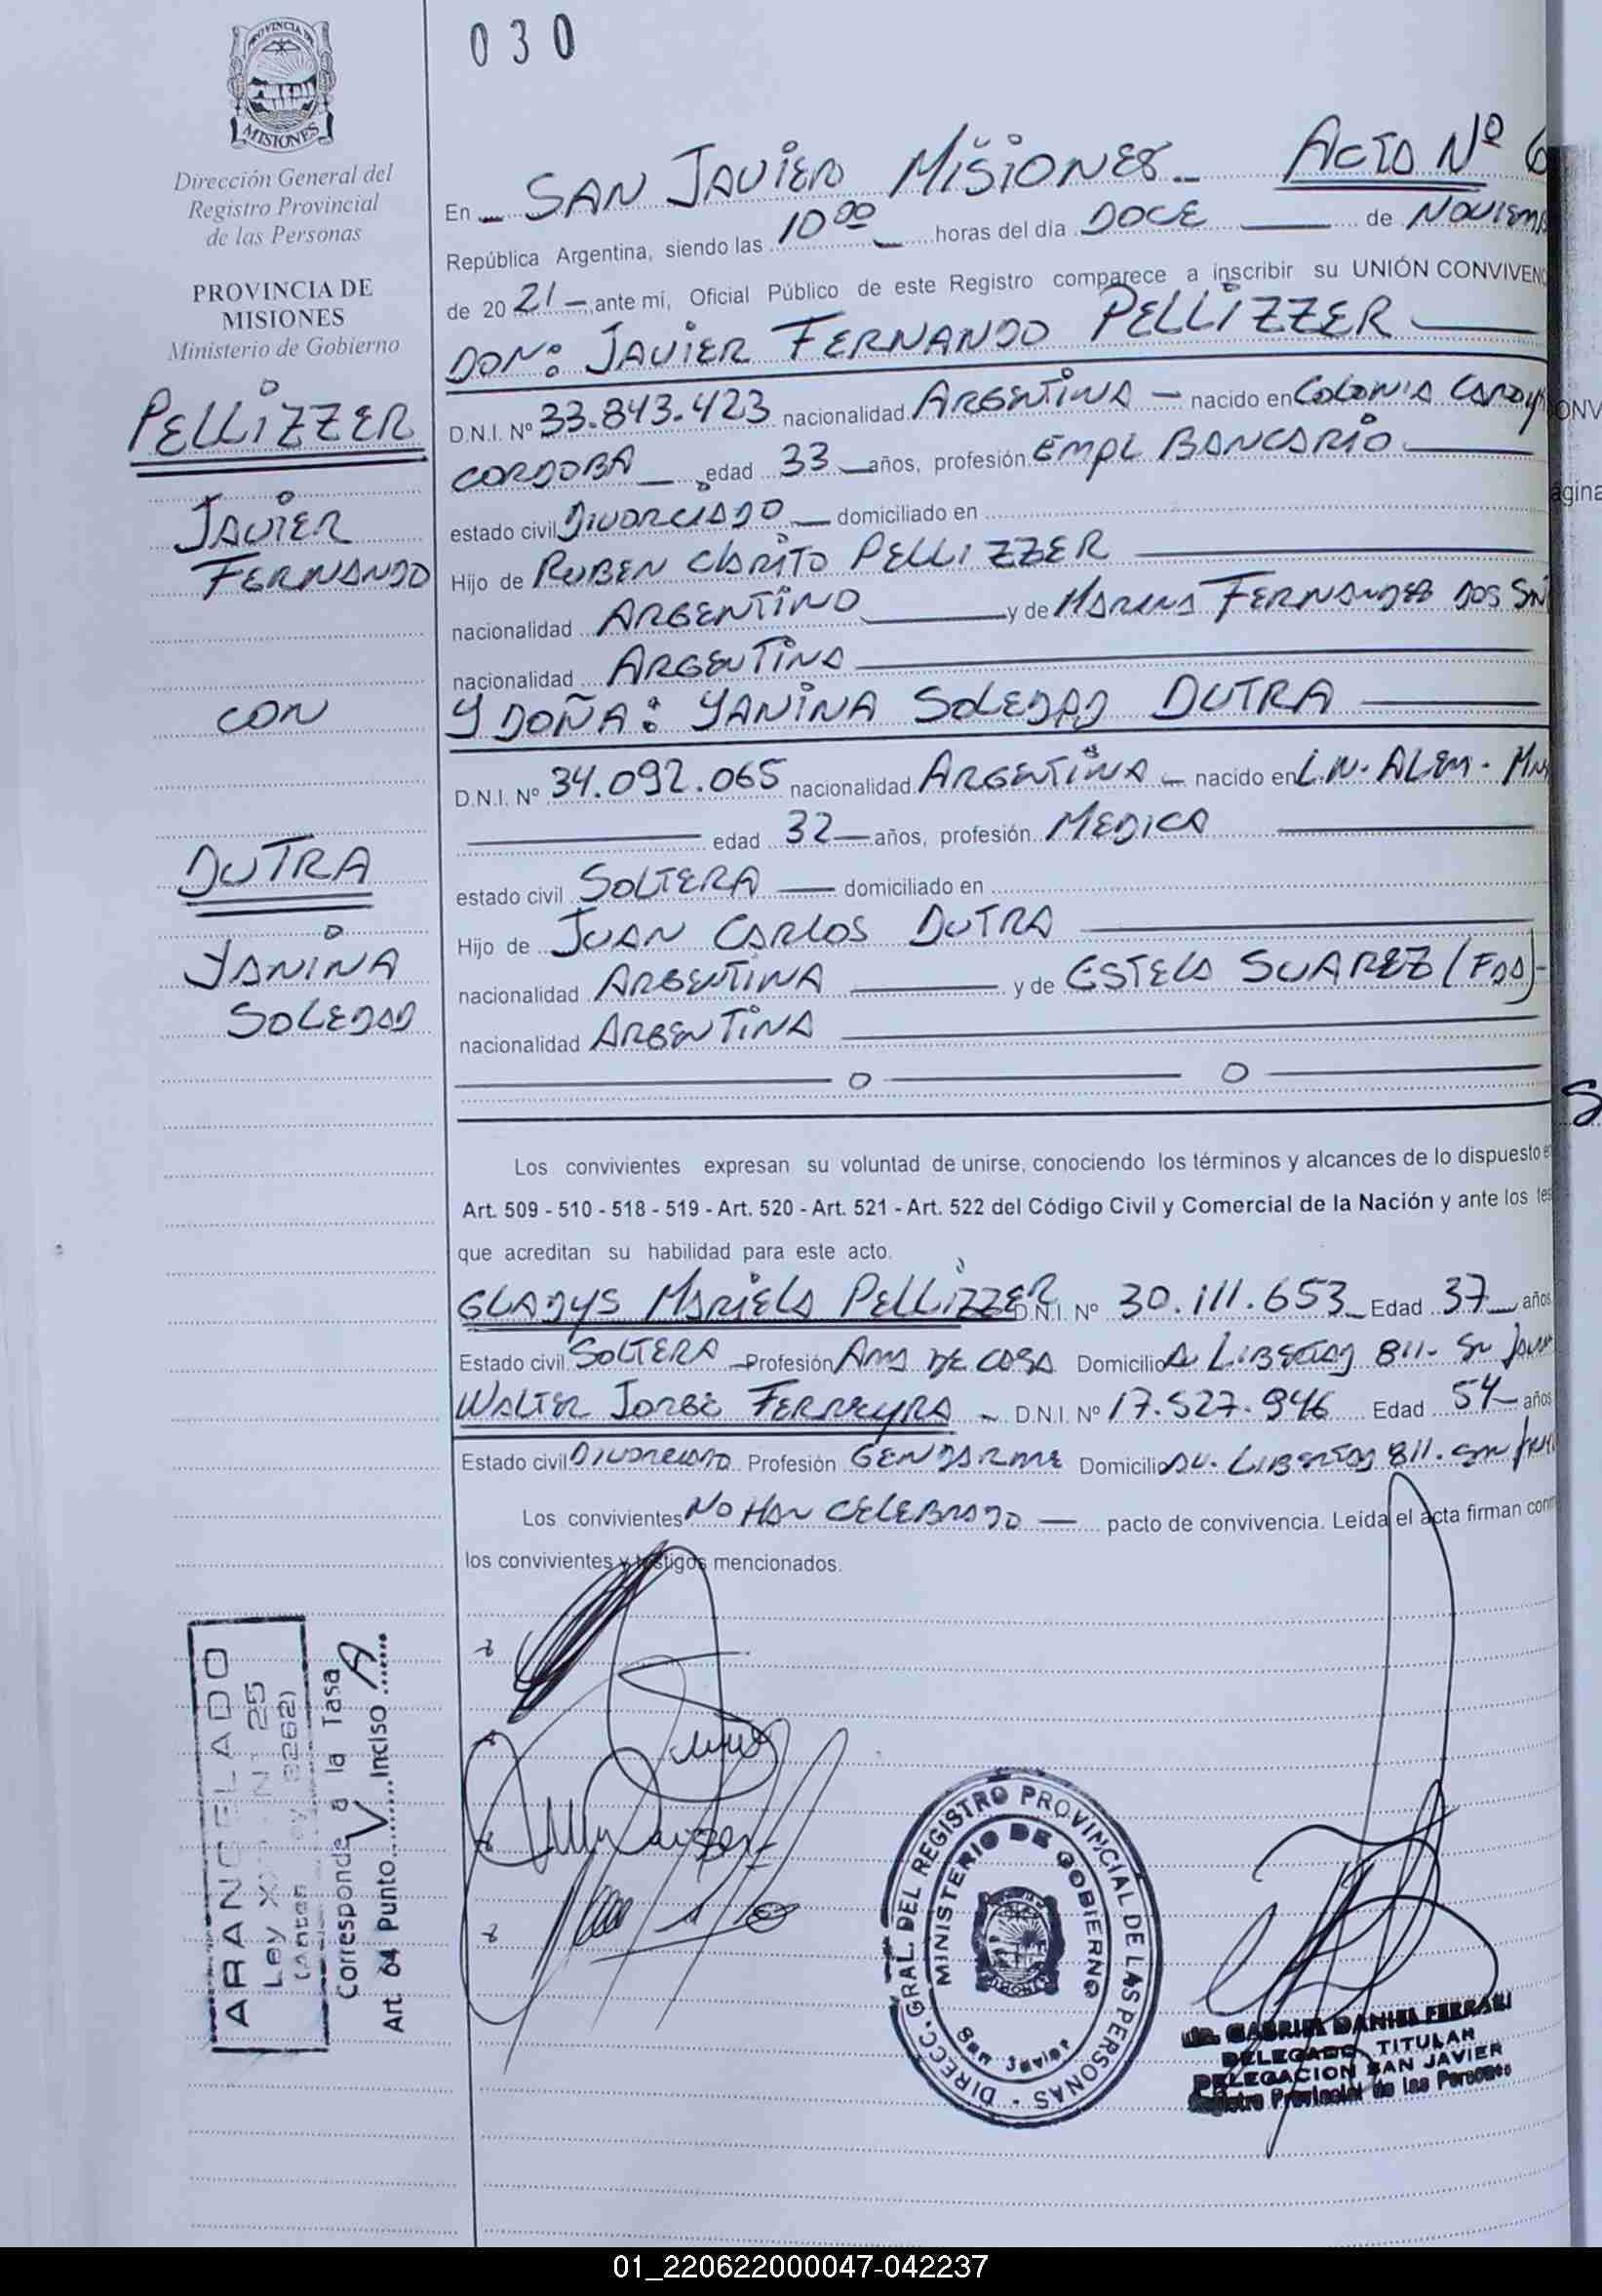 030
PROVINCIA DE
MISIONES
Dirección General del
Registro Provincial
de las Personas
PROVINCIA DE
MISIONES
Ministerio de Gobierno
PELLIZZER
JAVIER
FERNANDO
CON
DUTRA
YANINA
SOLEDAD
En SAN JAVIER MISIONES ACTO Nº 6
República Argentina, siendo las 10 00 horas del día DOCE de NOVIEM
de 20 21 ante mí, Oficial Público de este Registro comparece a inscribir su UNIÓN CONVIVENC
DON: JAVIER FERNANDO PELLIZZER
D.N.I. Nº 33.843.423 nacionalidad ARGENTINA nacido en COLONIA CAROYA
CORDOBA edad 33 años, profesión EMPL BANCARIO
estado civil DIVORCIADO domiciliado en
Hijo de RUBEN CLARITO PELLIZZER
nacionalidad ARGENTINO y de FERNANDES DOS
nacionalidad ARGENTINA
Y DOÑA: YANINA SOLEDAD DUTRA
D.N.I. Nº 34.092.065 nacionalidad ARGENTINA nacido en L.N. ALEM.
edad 32 años, profesión MEDICA
estado civil SOLTERA domiciliado en
Hijo de JUAN CARLOS DUTRA
nacionalidad ARGENTINA y de ESTELA SUAREZ
nacionalidad ARGENTINA
Los convivientes expresan su voluntad de unirse, conociendo los términos y alcances de lo dispuesto e
Art. 509 - 510 - 518 - 519 - Art. 520 - Art. 521 - Art. 522 del Código Civil y Comercial de la Nación y ante los tes
que acreditan su habilidad para este acto.
GLADYS MARIELA PELLIZZER D.N.I. Nº 30.111.653 Edad 37 años
Estado civil SOLTERA Profesión AMA DE CASA Domicilio LIBERTAD 811
WALTER JORGE FERREYRA D.N.I. Nº 17.527.946 Edad 54 años
Estado civil DIVORCIADO Profesión GENDARME Domicilio AV. LIBERTAD 811.
Los convivientes NO HAN CELEBRADO pacto de convivencia. Leída el acta firman con
los convivientes y testigos mencionados.
ARANCELADO
Ley
Corresponde a la Tasa
Art. 64 Punto V Inciso A
DIRECC. GRAL. DEL REGISTRO PROVINCIAL DE LAS PERSONAS
MINISTERIO DE GOBIERNO
San Javier
GABRIEL DANIEL FERRARI
DELEGADO TITULAR
DELEGACION SAN JAVIER
Registro Provincial de las Personas
ONV
ágina
S
01_220622000047-042237